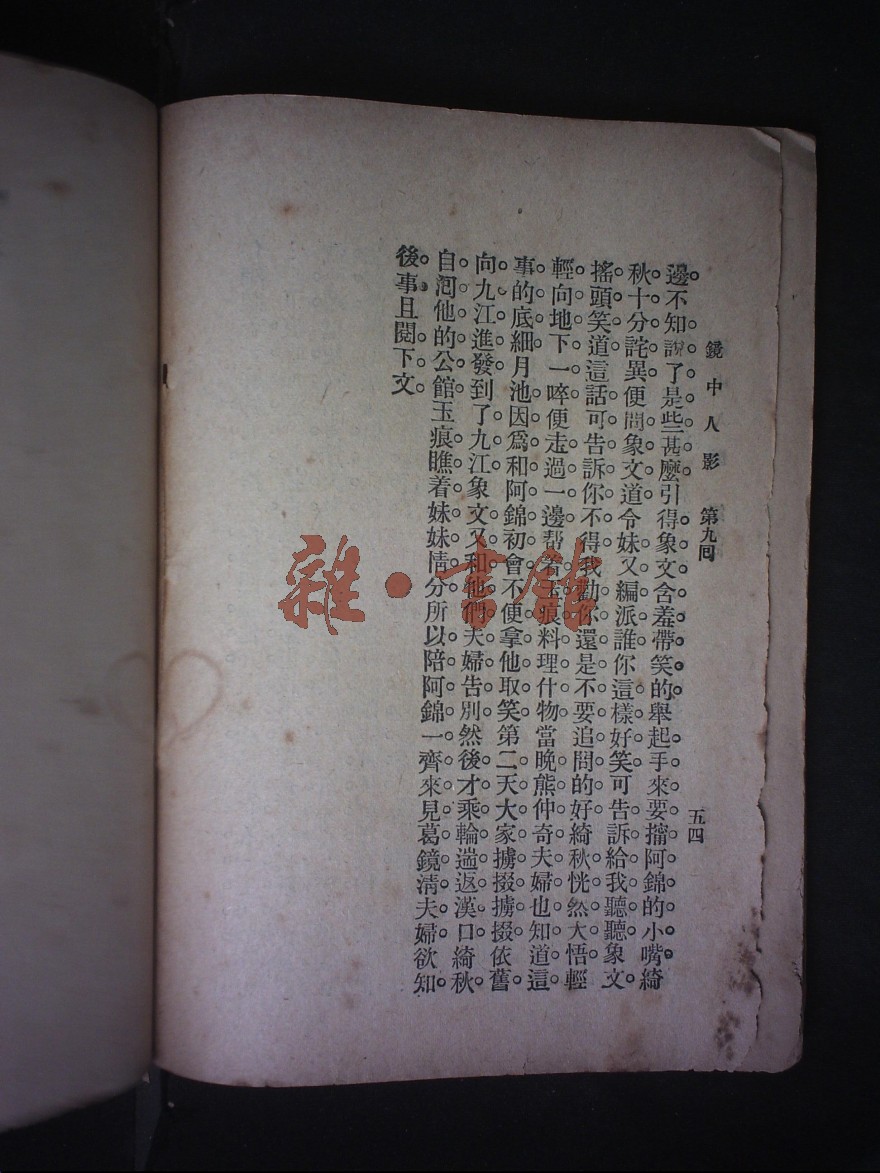 鏡中人影　第九回　五四
邊不知說了是些甚麼引得象文含羞帶笑的舉起手來要擰阿錦的小嘴綺
秋十分詫異便問象文道令妹又編派誰你這樣好笑可告訴給我聽聽象文
搖頭笑道這話可告訴你不得我勸你還是不要追問的好綺秋恍然大悟輕
輕向地下一啐便走過一邊帮着玉痕料理什物當晚熊仲奇夫婦也知道這
事的底細月池因爲和阿錦初會不便拿他取笑第二天大家擄掇擄掇依舊
向九江進發到了九江象文又和他們夫婦告別然後才乘輪遄返漢口綺秋
自囘他的公館玉痕瞧着妹妹情分所以陪阿錦一齊來見葛鏡清夫婦欲知
後事且閱下文
雜·書館